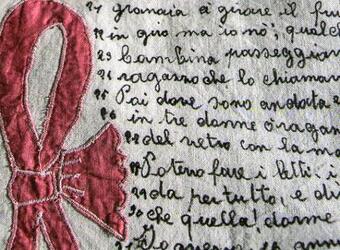 21 granaia a girare il fru
22 in giro ma io nò; qualch
23 bambina passeggian
24 ragazzo che lo chiamar
25 Poi dove sono andata
26 in tre donne o ragaz
27 del vetro con la ma
28 Potevo fare i letti, i
29 da per tutto, e di
30 che quella! darme
31